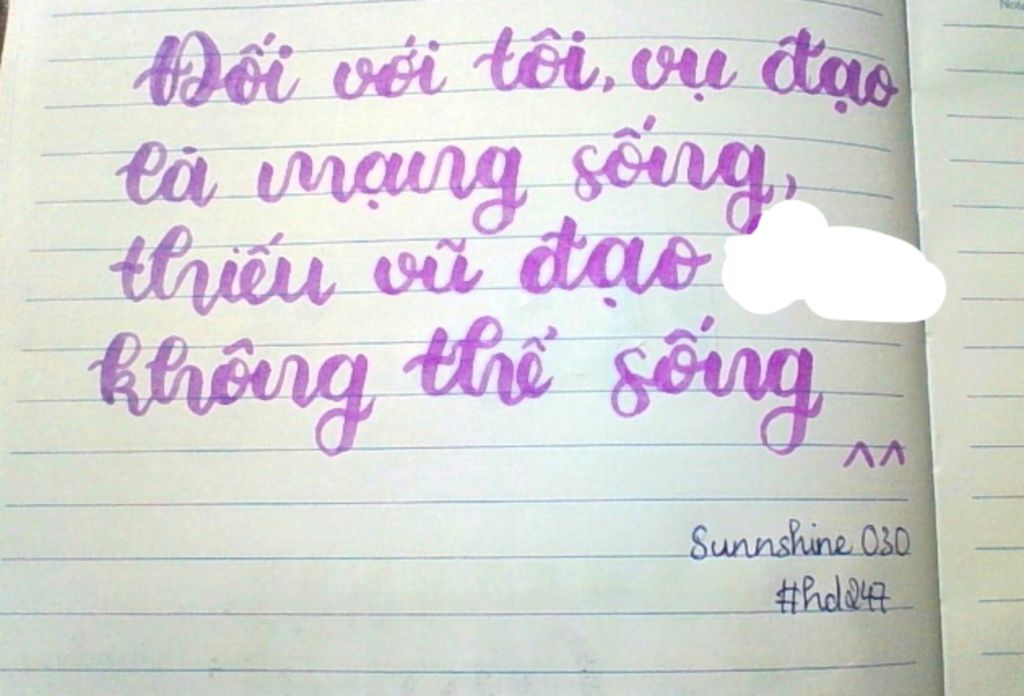 Đối với tôi, vụ đạo
là mạng sống,
thiếu vũ đạo
không thể sống
^^
Sunnshine 030
#hd247